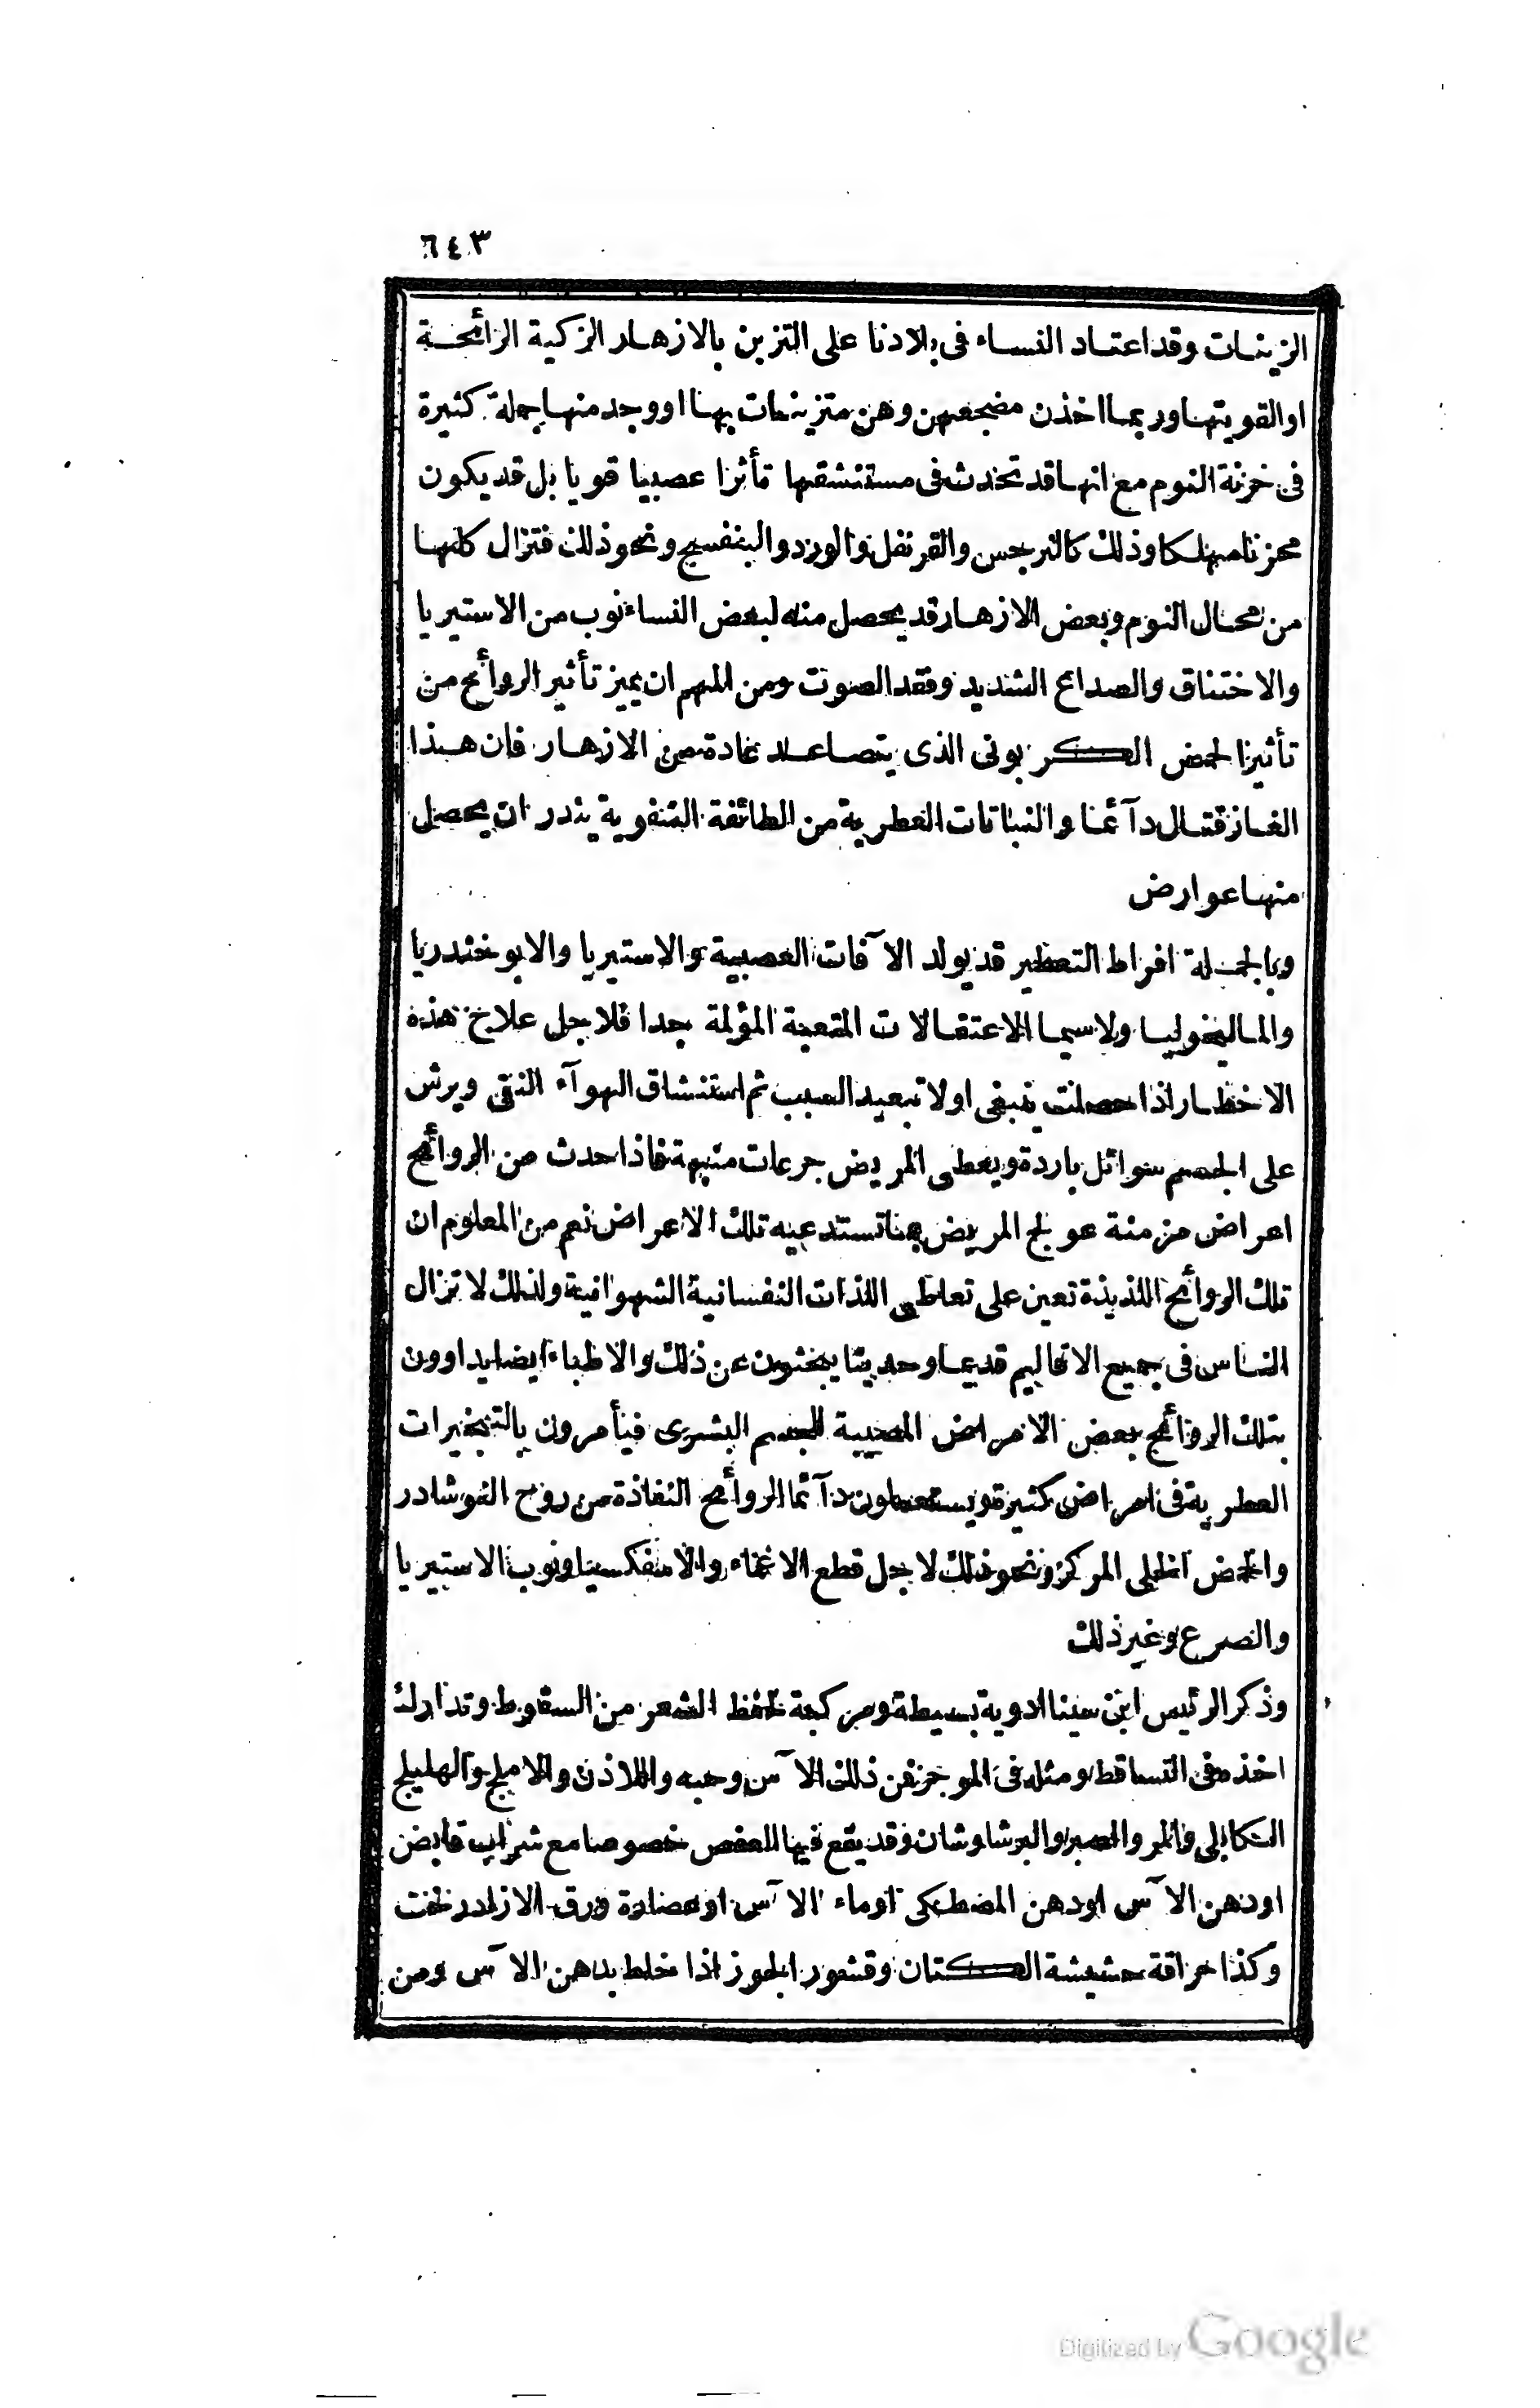 ٦٤٣
الزينات وقد اعتاد النساء فى بلادنا على التزين بالازهار الزكية الرائحة
او القويتها وربما اخذن مضجعهن وهن متزينات بها او وجد منها جملة كثيرة
فى خزنة النوم مع انها قد تحدث فى مستنشقها تأثرا عصبيا قويا بل قد يكون
محزنا مهلكا وذلك كالنرجس والقرنفل والورد والبنفسج ونحو ذلك فتزال كلها
من محال النوم وبعض الازهار قد يحصل منه لبعض النساء نوب من الاستيريا
والاختناق والصداع الشديد وفقد الصوت ومن المهم ان يميز تأثير الروائح من
تأثير الحمض الكربونى الذى يتصاعد عادة من الازهار فان هذا
الغاز قتال دآئما والنباتات العطرية من الطائفة الشفوية يندر ان يحصل
منها عوارض
وبالجملة افراط التعطير قد يولد الآفات العصبية والاستيريا والابوخندريا
والماليخوليا ولاسيما الاعتقالات المتعبة المؤلمة جدا فلاجل علاج هذه
الاخطار اذا حصلت ينبغى اولا تبعيد السبب ثم استنشاق الهوآء النقى ويرش
على الجسم سوائل باردة ويعطى المريض جرعات منبهة فاذا حدث من الروائح
اعراض مزمنة عولج المريض بما تستدعيه تلك الاعراض نعم من المعلوم ان
تلك الروائح اللذيذة تعين على تعاطى اللذات النفسانية الشهوانية ولذلك لا تزال
الناس فى جميع الاقاليم قديما وحديثا يبحثون عن ذلك والاطباء ايضا يداوون
بتلك الروائح بعض الامراض المصيبة للجسم البشرى فيأمرون بالتبخيرات
العطرية فى امراض كثيرة ويستعملون دآئما الروائح النفاذة من روح النوشادر
والحمض الخلى المركز ونحو ذلك لاجل قطع الاغماء والاسفكسيا ونوب الاستيريا
والصرع وغير ذلك
وذكر الرئيس ابن سينا ادوية بسيطة ومركبة لحفظ الشعر من السقوط وتدارك
اخذه فى التساقط ومثله فى الموجز فمن ذلك الآس وحبه واللاذن والاملج والهليلج
الكابلى والمر والصبر والبرشاوشان وقد يقع فيها العفص خصوصا مع شراب قابض
او دهن الآس او دهن المصطكى او ماء الآس او عصارة ورق الازادرخت
وكذا حراقة حشيشة الكتان وقشور الجوز اذا خلط بدهن الآس ومن
Digitized by Google